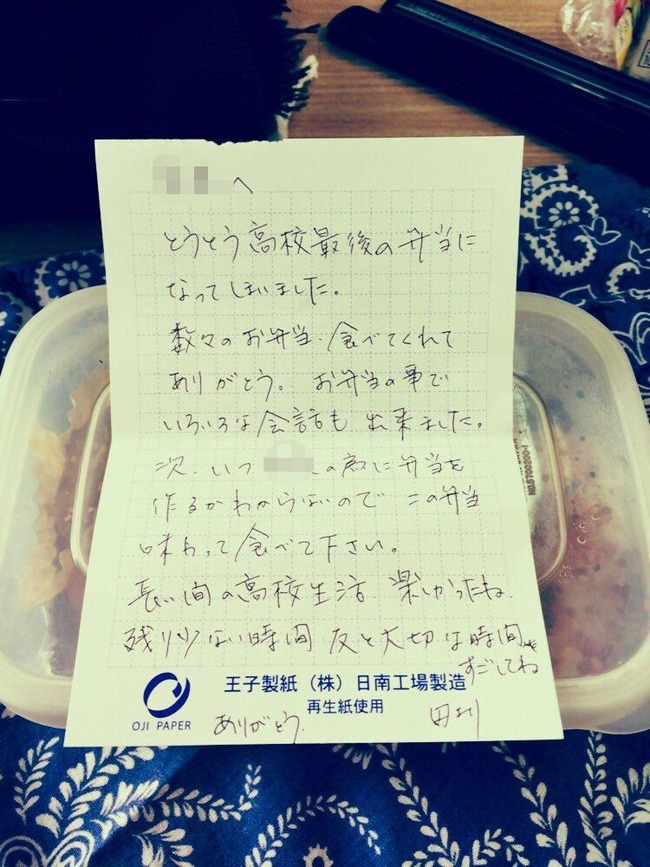 へ
とうとう高校最後の弁当に
なってしまいました。
数々のお弁当、食べてくれて
ありがとう。お弁当の事で
いろいろな会話も出来ました。
次、いつ の為に弁当を
作るかわからないので この弁当
味わって食べて下さい。
長い間の高校生活 楽しかったね
残り少ない時間 友と大切な時間を
すごしてね
王子製紙（株）日南工場製造
再生紙使用
OJI PAPER
ありがとう. 母より